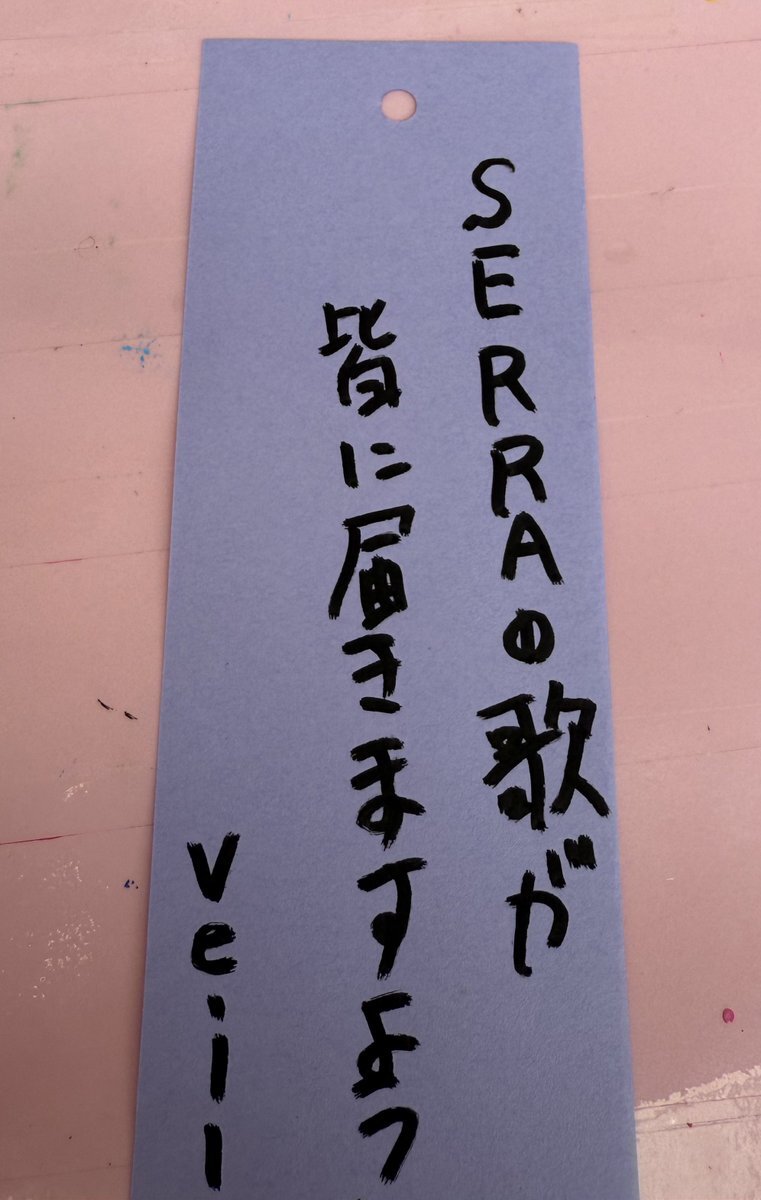 SERRAの歌が
皆に届きますよう
veil